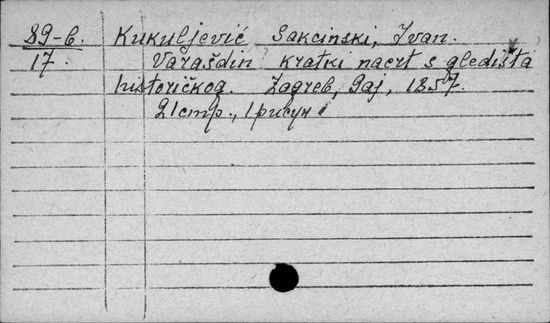 89-б. Kukuljević Sakcinski, Ivan.
17. Varaždin kratki nacrt s gledišta
historičkog. Zagreb, Gaj, 1857.
21 стр., 1 рисун